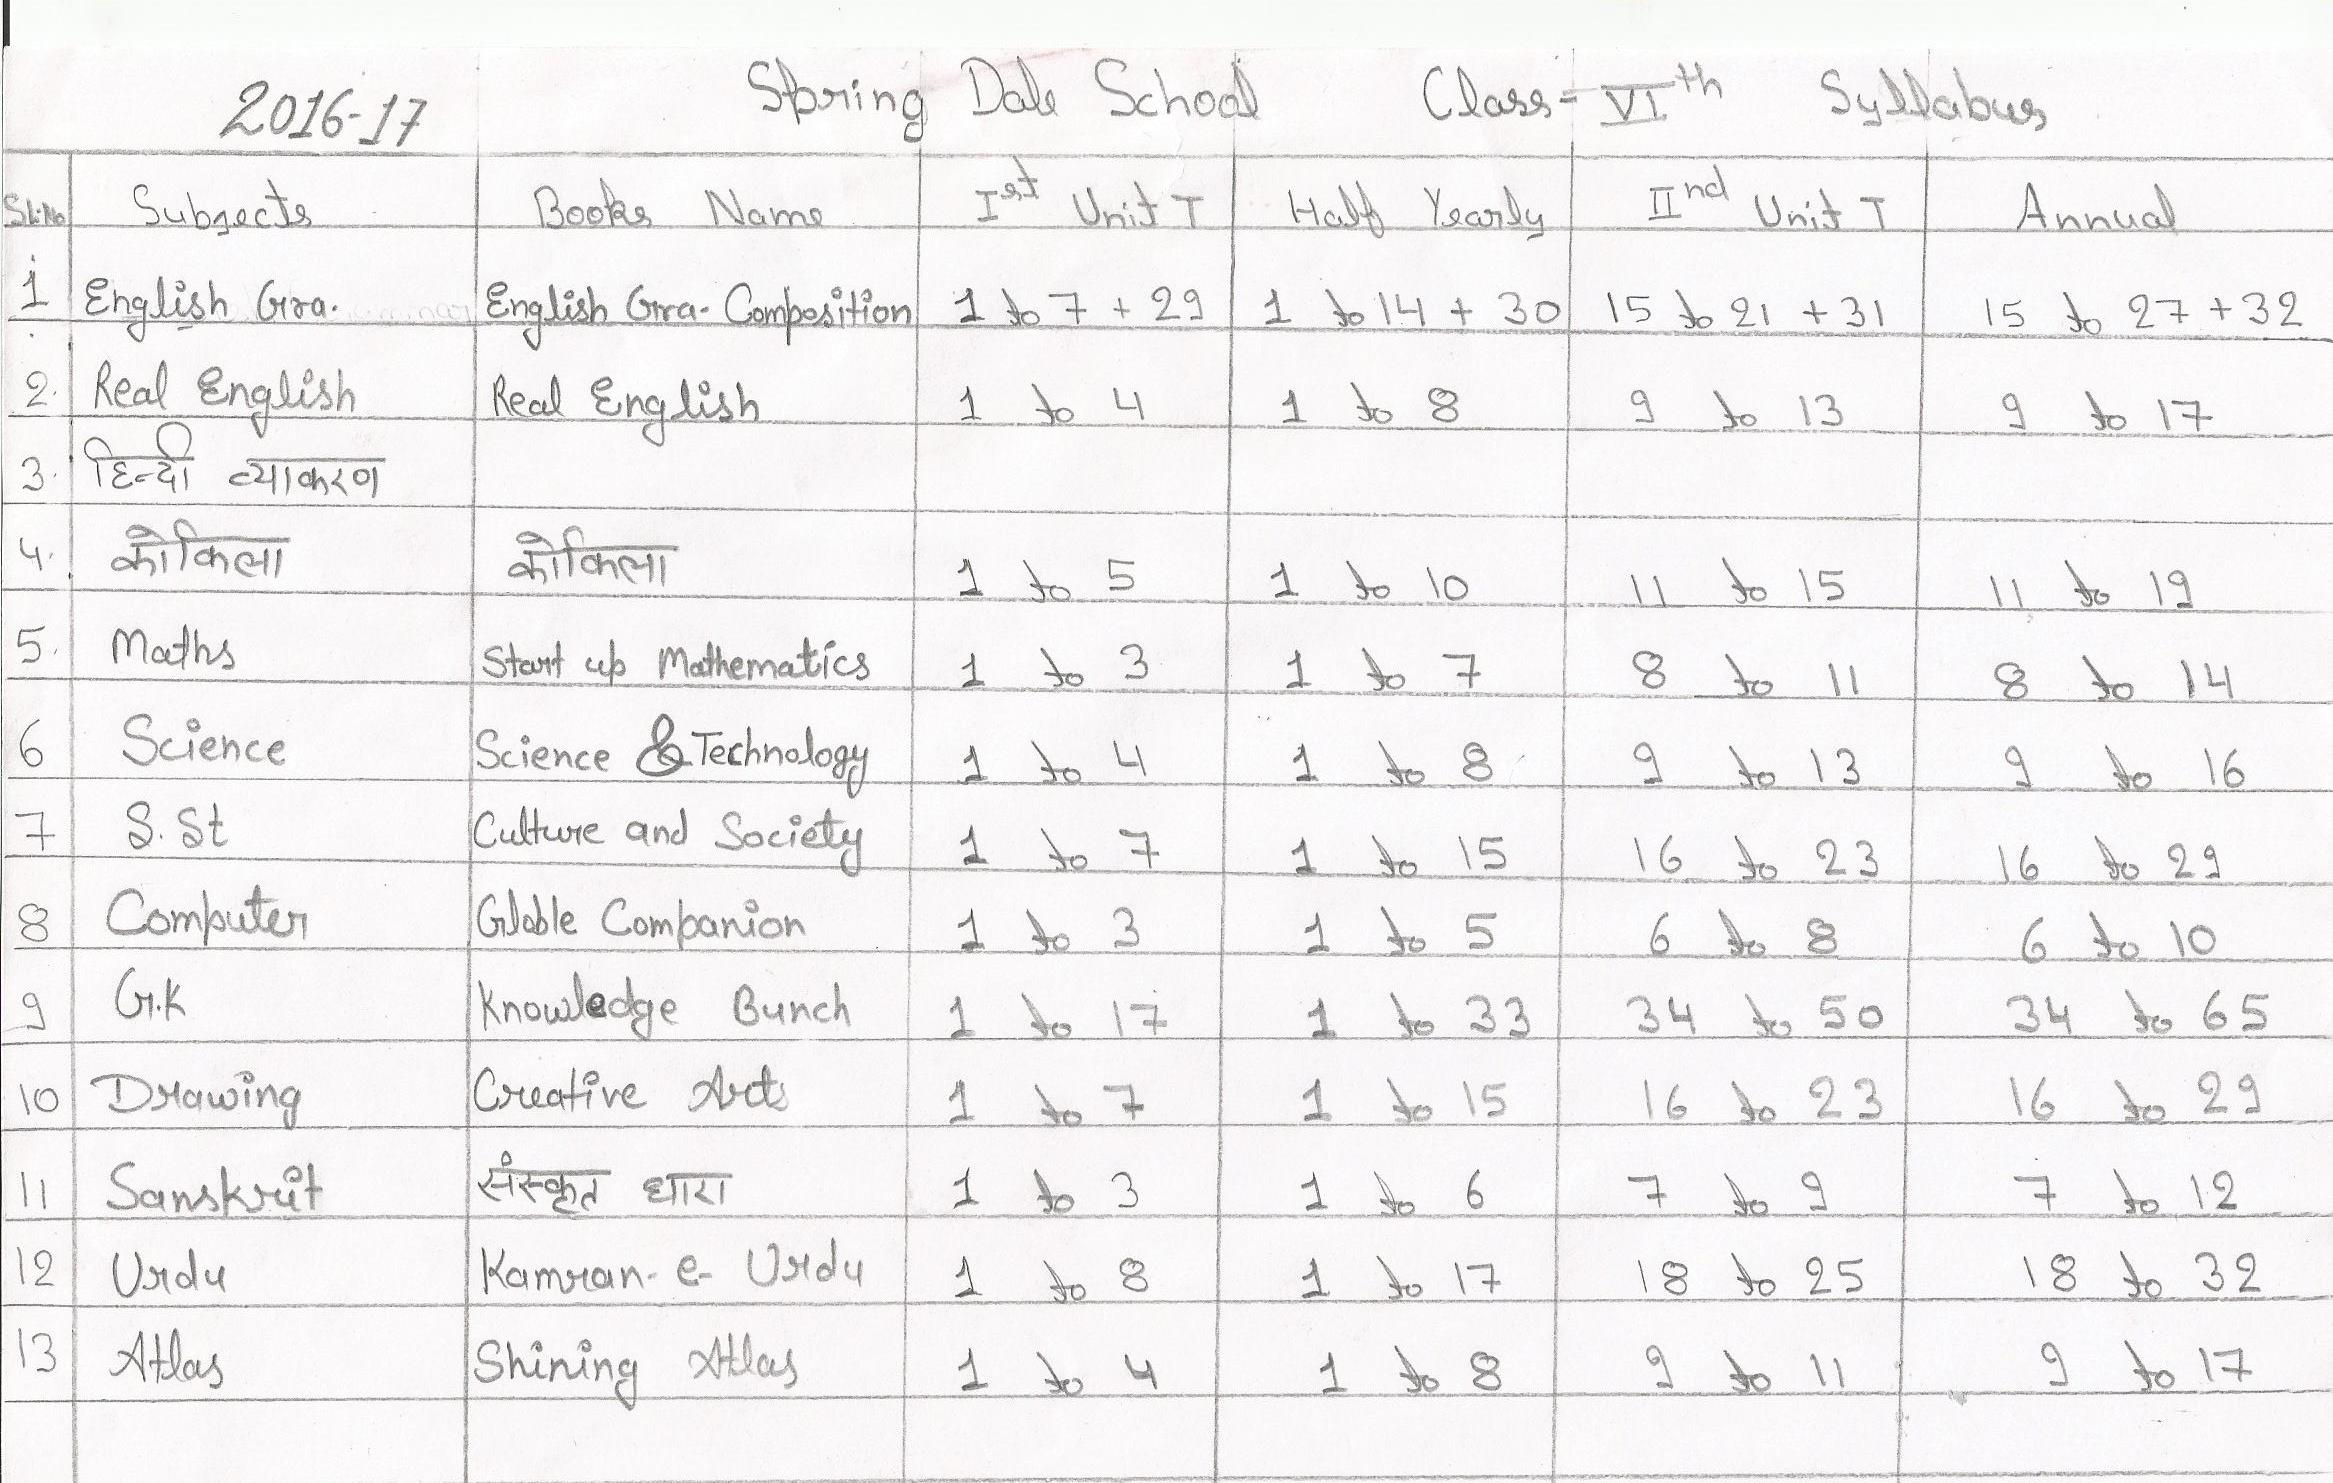 2016-17 Spring Dale School Class- VIth Syllabus
Sl.No Subjects Books Name Ist Unit T Half Yearly IInd Unit T Annual
1 English Gra. English Gra. Composition 1 to 7 + 29 1 to 14 + 30 15 to 21 + 31 15 to 27 + 32
2. Real English Real English 1 to 4 1 to 8 9 to 13 9 to 17
3. हिन्दी व्याकरण
4. कोकिला कोकिला 1 to 5 1 to 10 11 to 15 11 to 19
5. Maths Start up Mathematics 1 to 3 1 to 7 8 to 11 8 to 14
6 Science Science & Technology 1 to 4 1 to 8 9 to 13 9 to 16
7 S.St Culture and Society 1 to 7 1 to 15 16 to 23 16 to 29
8 Computer Globle Companion 1 to 3 1 to 5 6 to 8 6 to 10
9 G.K Knowledge Bunch 1 to 17 1 to 33 34 to 50 34 to 65
10 Drawing Creative Arts 1 to 7 1 to 15 16 to 23 16 to 29
11 Sanskrit संस्कृत धारा 1 to 3 1 to 6 7 to 9 7 to 12
12 Urdu Kamran-e-Urdu 1 to 8 1 to 17 18 to 25 18 to 32
13 Atlas Shining Atlas 1 to 4 1 to 8 9 to 11 9 to 17